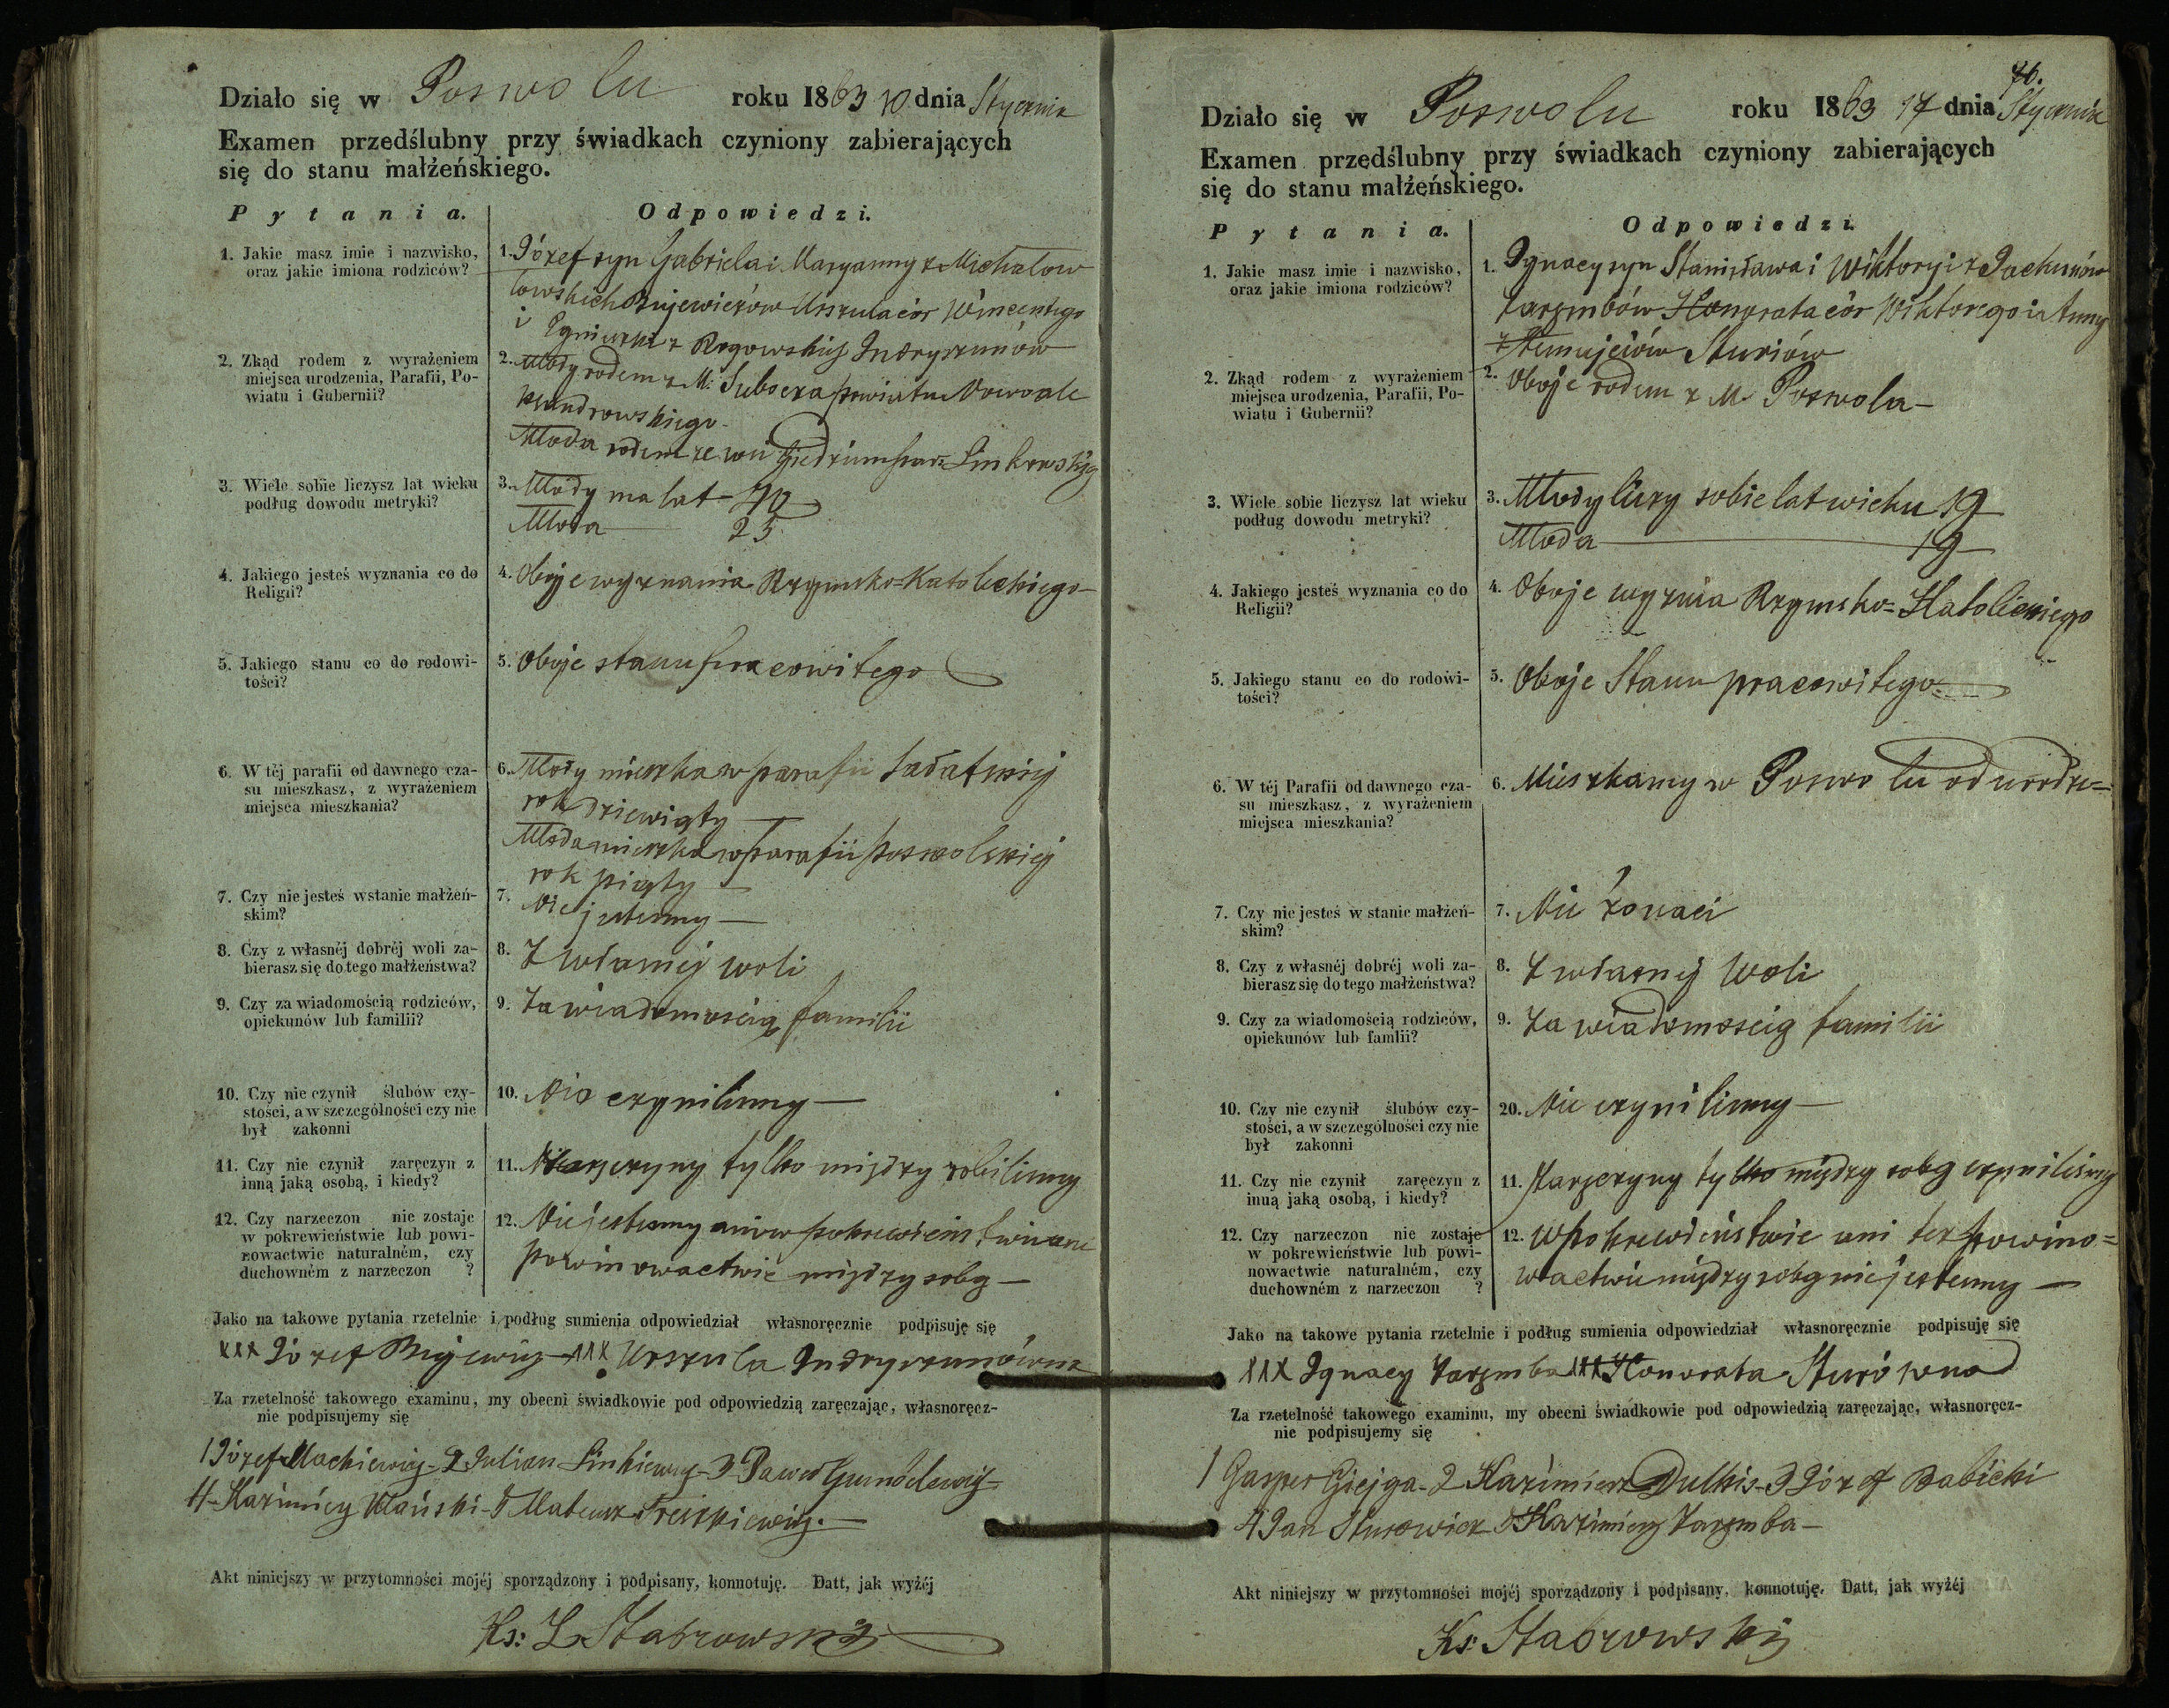 Działo się w Poswolu roku 1863 10 dnia Stycznia
Examen przedślubny przy świadkach czyniony zabierających
się do stanu małżeńskiego.
Pytania. Odpowiedzi.
1. Jakie masz imie i nazwisko,
oraz jakie imiona rodziców?
1. Józef syn Gabriela i Maryanny z Michałow
towskich Urszula cór Wincentego
i z Rogowskich
2. Zkąd rodem z wyrażeniem
miejsca urodzenia, Parafii, Po-
wiatu i Gubernii?
2. Młody rodem z M. Subocza powiatu Nowoale
ksandrowskiego
Młoda rodem ze wsi par: Linkowskiej
3. Wiele sobie liczysz lat wieku
podług dowodu metryki?
3. Młody ma lat 40
Młoda 25
4. Jakiego jesteś wyznania co do
Religii?
4. Oboje wyznania Rzymsko=Katolickiego
5. Jakiego stanu co do rodowi-
tości?
5. Oboje stanu pracowitego
6. W téj parafii od dawnego cza-
su mieszkasz, z wyrażeniem
miejsca mieszkania?
6. Młody mieszka w parafii Sałatskiej
rok dziewiąty
Młoda mieszka w parafii poswolskiej
rok piąty
7. Czy nie jesteś w stanie małżeń-
skim?
7. Nie jestesmy
8. Czy z własnéj dobréj woli za-
bierasz się do tego małżeństwa?
8. Z własnej woli
9. Czy za wiadomością rodziców,
opiekunów lub familii?
9. Za wiadomoscią familii
10. Czy nie czynił ślubów czy-
stości, a w szczególności czy nie
był zakonni
10. Nie czynilismy
11. Czy nie czynił zaręczyn z
inną jaką osobą, i kiedy?
11. tylko między robilismy
12. Czy narzeczon nie zostaje
w pokrewieństwie lub powi-
nowactwie naturalném, czy
duchowném z narzeczon ?
12. Nie jestesmy ani w pokrewieństwie ani
powinowactwie między sobą
Jako na takowe pytania rzetelnie i podług sumienia odpowiedział własnoręcznie podpisuję się
xxx Józef xxx Urszula
Za rzetelność takowego examinu, my obecni świadkowie pod odpowiedzią zaręczając, własnoręcz-
nie podpisujemy się
1 Józef Mackiewicz 2 Julian Linkiewicz 3 Paweł
4 Kazimierz 5 Mateusz
Akt niniejszy w przytomności mojéj sporządzony i podpisany, konnotuję. Datt, jak wyżéj
Ks: L Stabrowski
76.
Działo się w Poswolu roku 1863 17 dnia Stycznia
Examen przedślubny przy świadkach czyniony zabierających
się do stanu małżeńskiego.
Pytania. Odpowiedzi.
1. Jakie masz imie i nazwisko,
oraz jakie imiona rodziców?
1. Ignacy syn Stanisława i Wiktoryi z
Zarzmbów Honorata cór Wiktorego i Anny
z Sturiów
2. Zkąd rodem z wyrażeniem
miejsca urodzenia, Parafii, Po-
wiatu i Gubernii?
2. Oboje rodem z M. Poswola
3. Wiele sobie liczysz lat wieku
podług dowodu metryki?
3. Młody liczy sobie lat wieku 19
Młoda 19
4. Jakiego jesteś wyznania co do
Religii?
4. Oboje wyznia Rzymsko=Katolickiego
5. Jakiego stanu co do rodowi-
tości?
5. Oboje Stanu pracowitego
6. W téj Parafii od dawnego cza-
su mieszkasz, z wyrażeniem
miejsca mieszkania?
6. Mieszkamy w Poswolu od urodze=
7. Czy nie jesteś w stanie małżeń-
skim?
7. Nie żonaci
8. Czy z własnéj dobréj woli za-
bierasz się do tego małżeństwa?
8. Z własnej Woli
9. Czy za wiadomością rodziców,
opiekunów lub famlii?
9. Za wiadomoscią familii
10. Czy nie czynił ślubów czy-
stości, a w szczególności czy nie
był zakonni
20. Nie czynilismy
11. Czy nie czynił zaręczyn z
inną jaką osobą, i kiedy?
11. Zaręczyny tylko między sobą czynilismy
12. Czy narzeczon nie zostaje
w pokrewieństwie lub powi-
nowactwie naturalném, czy
duchowném z narzeczon ?
12. W pokrewieństwie ani tez powino=
wactwie między sobą nie jestesmy
Jako na takowe pytania rzetelnie i podług sumienia odpowiedział własnoręcznie podpisuję się
xxx Ignacy Zarzmba xxx Honorata Sturówna
Za rzetelność takowego examinu, my obecni świadkowie pod odpowiedzią zaręczając, własnoręcz-
nie podpisujemy się
1 Gasper Giejga 2 Kazimierz Dulkis 3 Józef Babicki
4 Jan Sturewicz 5 Kazimierz Zarzmba
Akt niniejszy w przytomności mojéj sporządzony i podpisany, konnotuję. Datt, jak wyżéj
Ks: Stabrowski